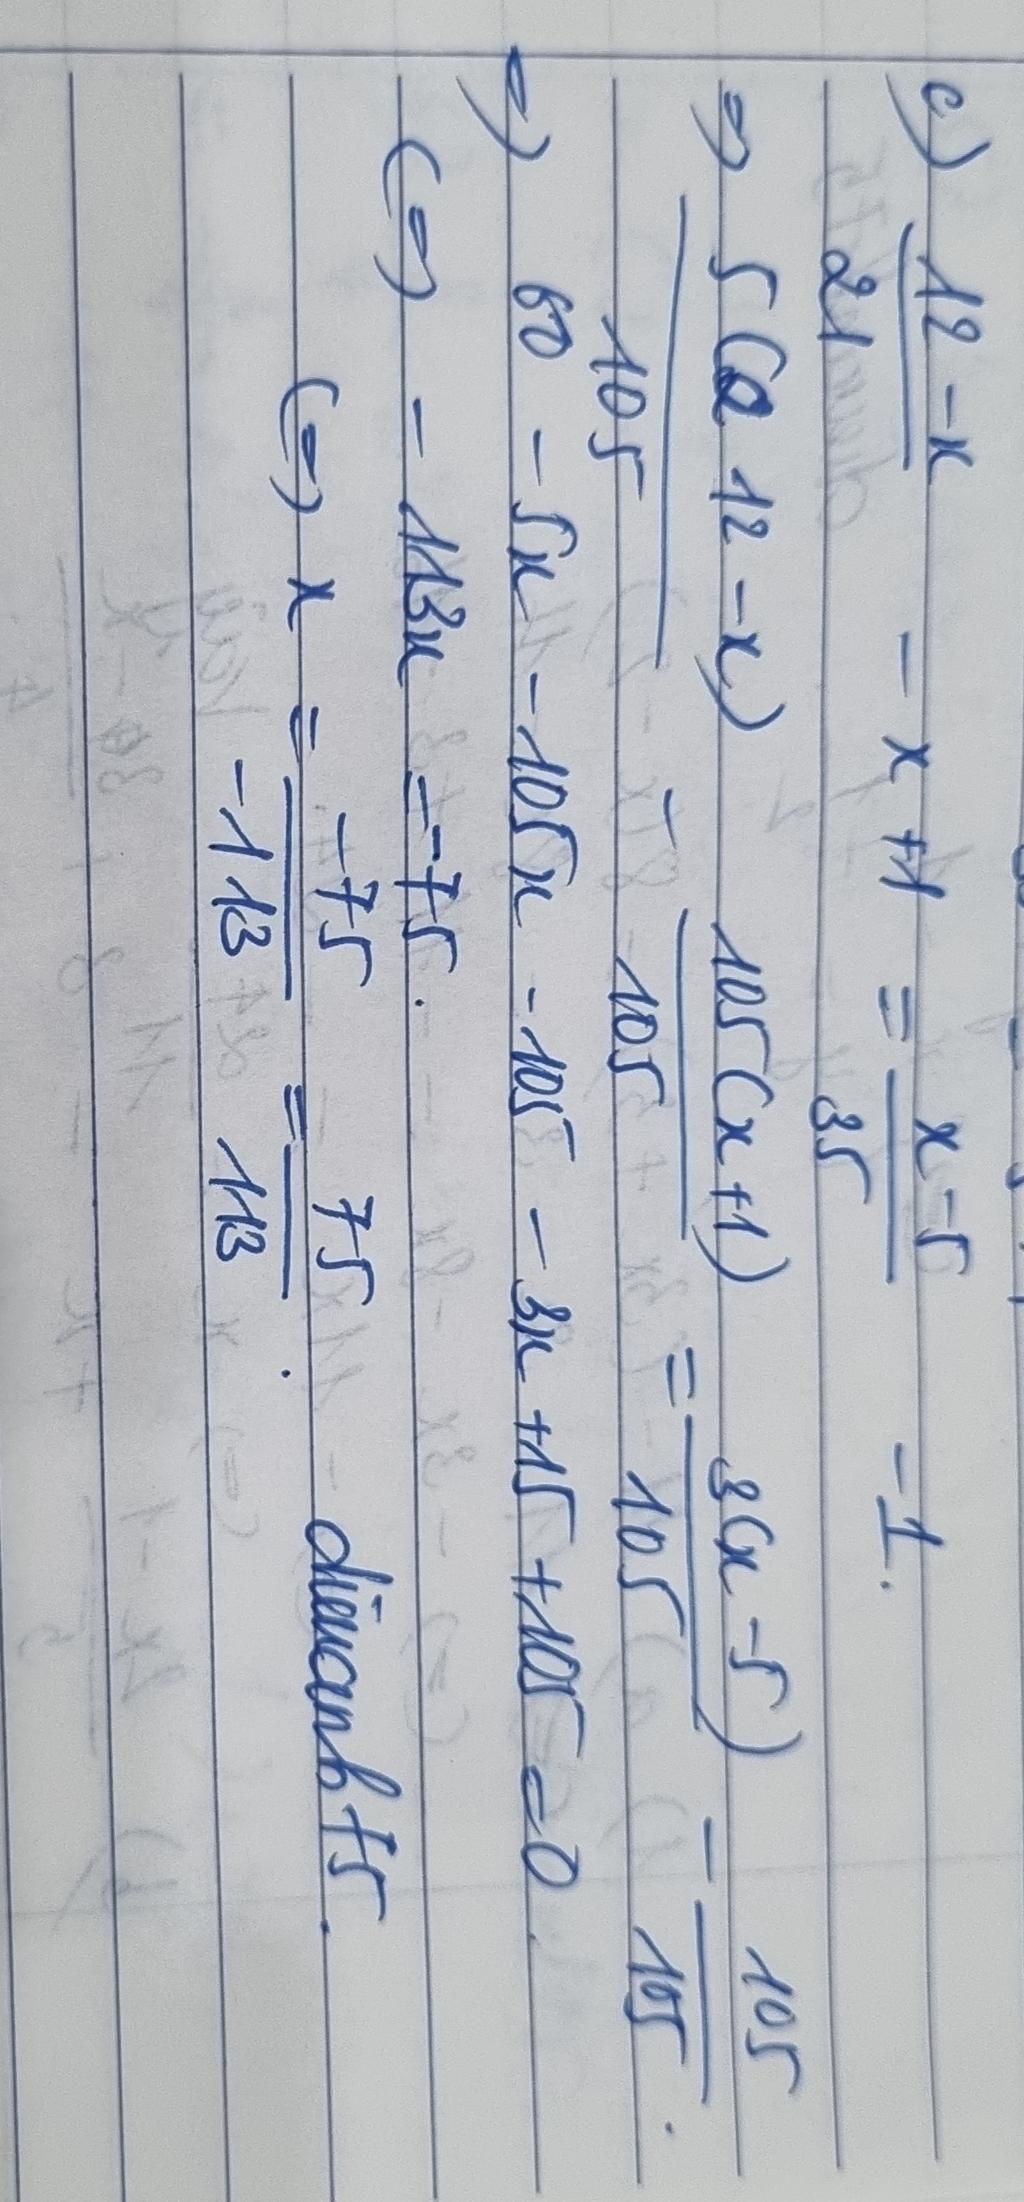 c) 12-x/21 - x+1 = x-5/35 - 1.
=> 5(12-x)/105 - 105(x+1)/105 = 3(x-5)/105 - 105/105.
=> 60 - 5x - 105x - 105 - 3x + 15 + 105 = 0.
<=> - 113x = -75.
<=> x = -75/-113 = 75/113.